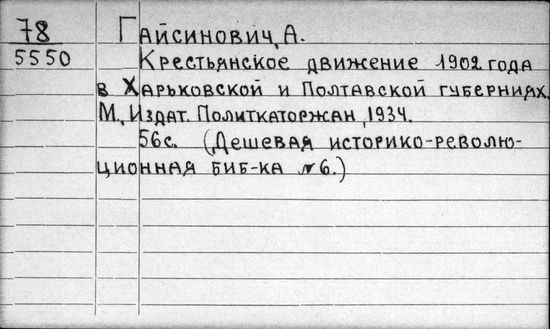 78 Гайсинович, А.
5550 Крестьянское движение 1902 года
в Харьковской и Полтавской губерниях.
М., Издат. Политкаторжан, 1934.
56с. (Дешевая историко-револю-
ционная биб-ка №6.)